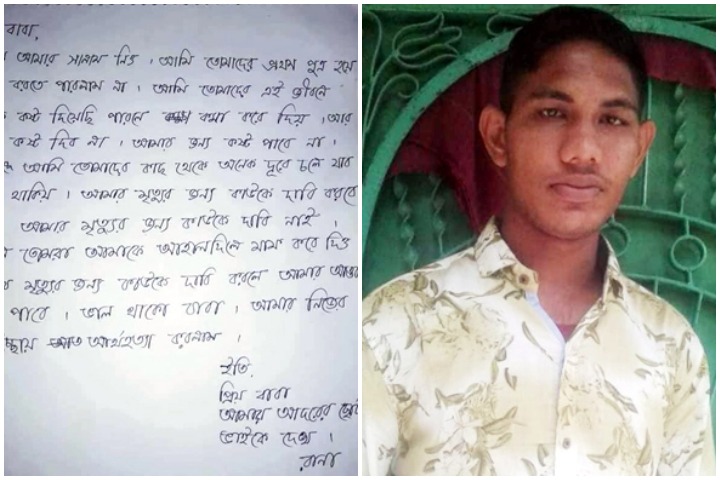 বাবা,
আমার সালাম নিও । আমি তোমাদের প্রথম পুত্র হলে
করতে পারলাম না । আমি তোমাদের এই জীবনে
কষ্ট দিয়েছি পারলে ক্ষমা করে দিয় । আর
কষ্ট দিব না । আমার জন্য কষ্ট পাবে না ।
আমি তোমাদের কাছ থেকে অনেক দূরে চলে যাব
থাকিয় । আমার মৃত্যুর জন্য কাউকে দাবি করবে
আমার মৃত্যুর জন্য কাউকে দাবি নাই ।
তোমরা আমাকে মাফ করে দিও
মৃত্যুর জন্য কাউকে দাবি করলে আমার
পাবে । ভাল থাকো বাবা । আমার নিজের
আর্থহত্যা করলাম ।
ইতি.
প্রিয় বাবা
আমার আদরের
ভাইকে দেখ ।
রানা